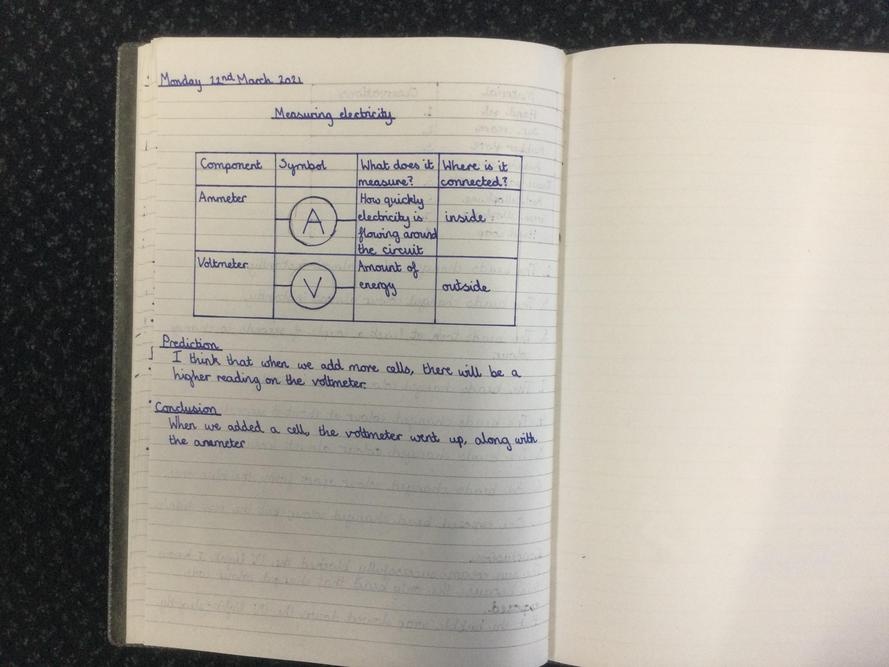 Monday 22nd March 2021
Measuring electricity
Component Symbol What does it measure? Where is it connected?
Ammeter A How quickly electricity is flowing around the circuit inside
Voltmeter V Amount of energy outside
Prediction
I think that when we add more cells, there will be a
higher reading on the voltmeter.
Conclusion
When we added a cell, the voltmeter went up, along with
the ammeter